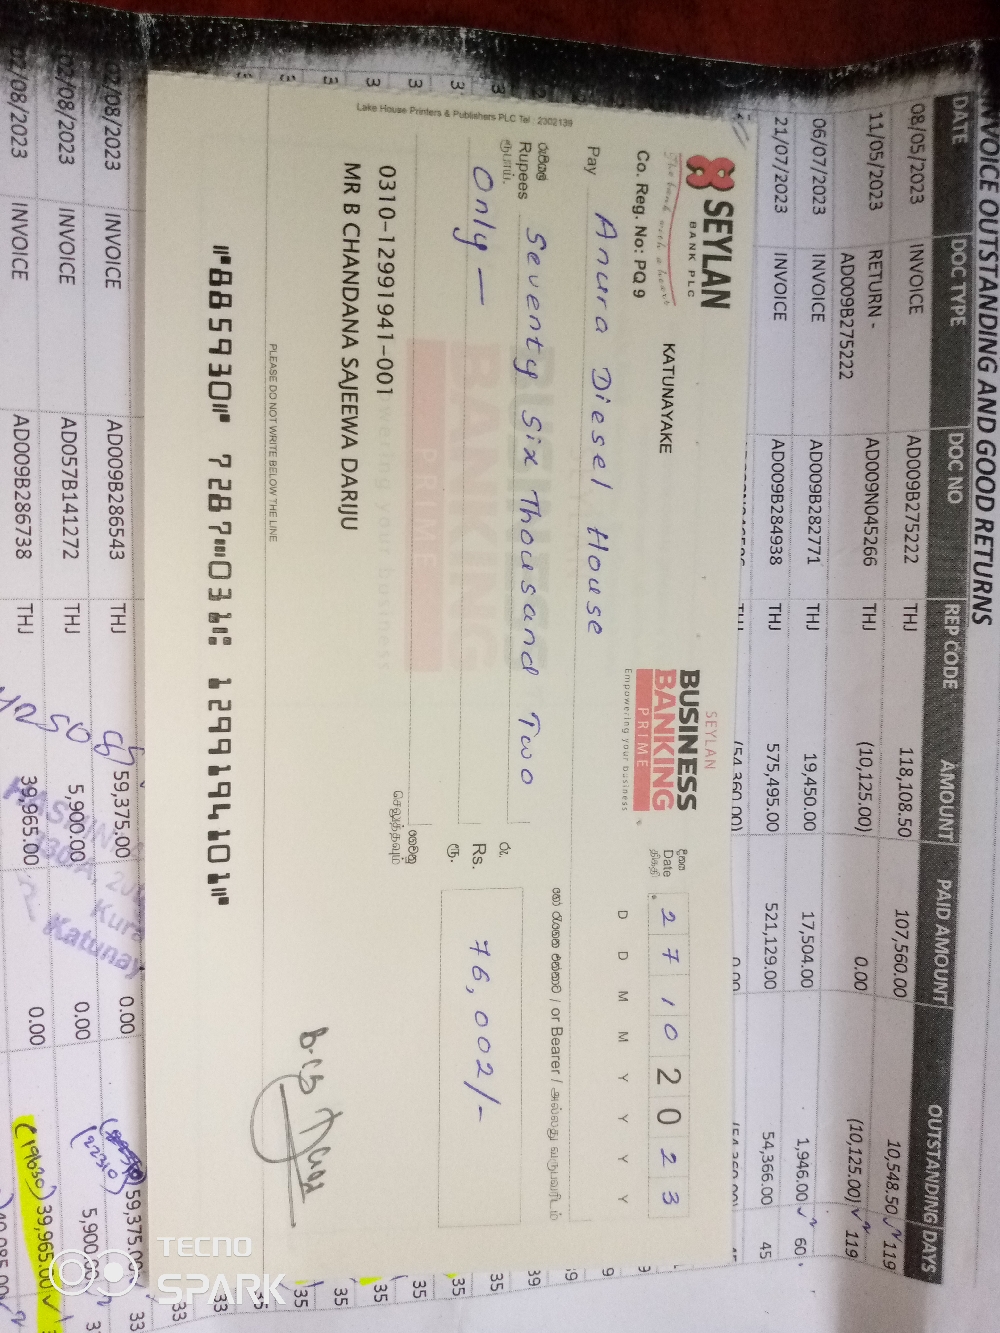 INVOICE OUTSTANDING AND GOOD RETURNS
DATE DOC TYPE DOC NO REP CODE AMOUNT PAID AMOUNT OUTSTANDING DAYS
08/05/2023 INVOICE AD009B275222 THJ 118,108.50 107,560.00 10,548.50 119
11/05/2023 RETURN - AD009N045266 THJ (10,125.00) 0.00 (10,125.00) 119
AD009B275222
06/07/2023 INVOICE AD009B282771 THJ 19,450.00 17,504.00 1,946.00 60
21/07/2023 INVOICE AD009B284938 THJ 575,495.00 521,129.00 54,366.00 45
SEYLAN
BANK PLC
The bank with a heart
Co. Reg. No: PQ 9
KATUNAYAKE
SEYLAN
BUSINESS
BANKING
PRIME
Empowering your business
දිනය
Date
திகதி
27102023
D D M M Y Y Y Y
Pay Anura Diesel House
or Bearer
රුපියල්
Rupees Seventy Six Thousand Two
ரூபாய்
Only —
රු.
Rs. 76,002/-
ரூ.
0310-12991941-001
MR B CHANDANA SAJEEWA DARIJU
PLEASE DO NOT WRITE BELOW THE LINE
⑈885930⑈ 7287⑉031⑆ 1299194101⑈
Lake House Printers & Publishers PLC Tel : 2302139
02/08/2023 INVOICE AD009B286543 THJ 59,375.00 0.00 59,375.00 33
02/08/2023 INVOICE AD057B141272 THJ 5,900.00 0.00 (22310) 5,900.00
02/08/2023 INVOICE AD009B286738 THJ 39,965.00 0.00 (19630) 39,965.00
Katunay
TECNO
SPARK